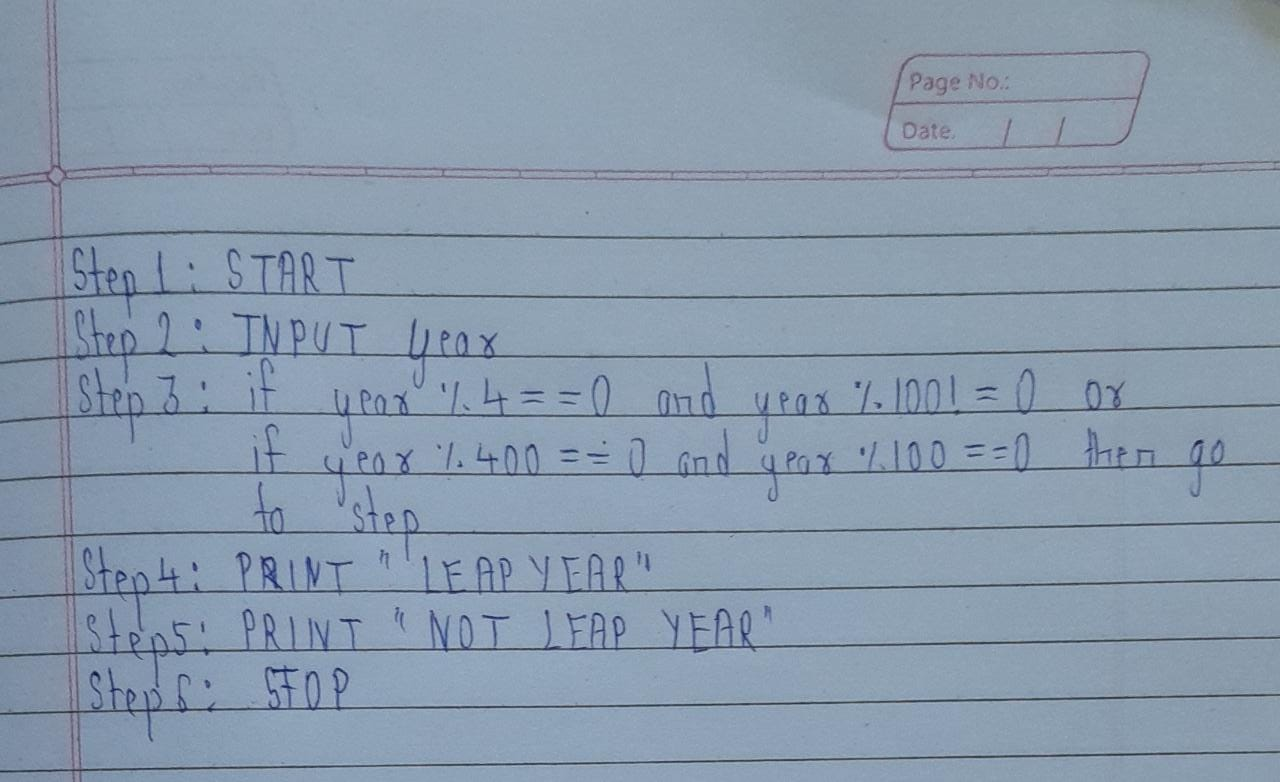 Page No.:
Date. / /
Step 1: START
Step 2: INPUT year
Step 3: if year % 4 == 0 and year % 100! = 0 or
if year % 400 == 0 and year % 100 == 0 then go
to step
Step 4: PRINT "LEAP YEAR"
Step 5: PRINT "NOT LEAP YEAR"
Step 6: STOP